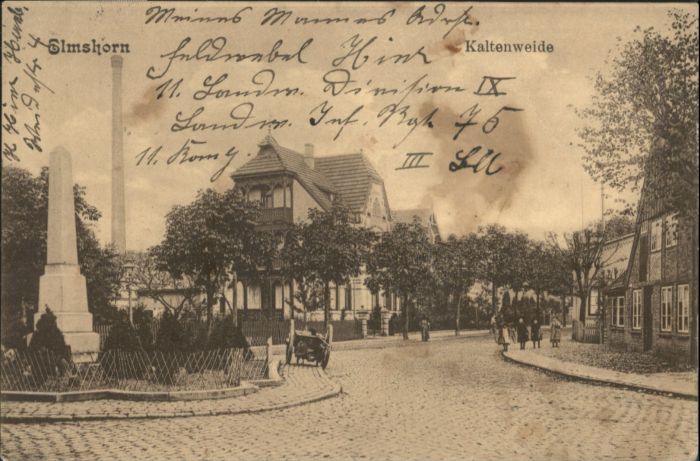 Elmshorn
Kaltenweide
Meines Mannes Adr.
Feldwebel Hinz
11. Landw. Division IX
Landw. Inf. Rgt. 75
11. Komp. III Btl